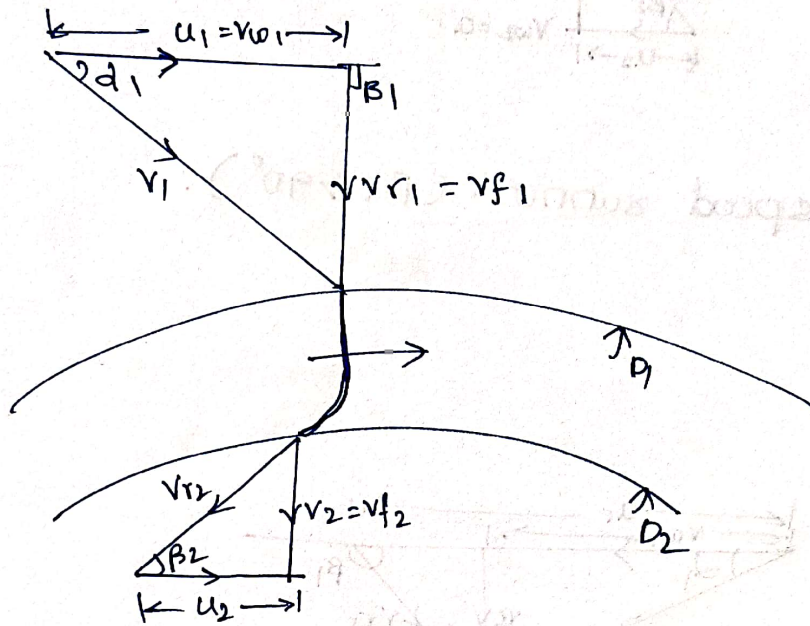 u₁ = vω₁
α₁
β₁
V₁
Vr₁ = Vf₁
D₁
Vr₂
V₂ = Vf₂
D₂
β₂
u₂